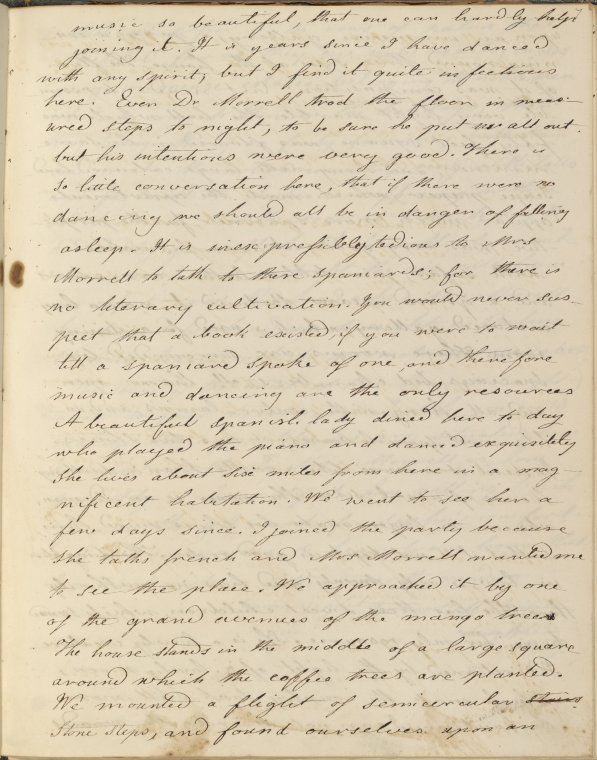 music so beautiful, that one can hardly help
joining it. It is years since I have danced
with any spirit, but I find it quite infectious
here. Even Dr Morrell trod the floor in meas-
ured steps to night, to be sure he put us all out.
but his intentions were very good. There is
so little conversation here, that if there were no
dancing we should all be in danger of falling
asleep. It is inexpressibly tedious to Mrs
Morrell to talk to these spaniards; for there is
no literary cultivation. You would never sus-
pect that a book existed, if you were to wait
till a spaniard spoke of one, and therefore
music and dancing are the only resources
A beautiful spanish lady dined here to day
who played the piano and danced exquisitely
She lives about six miles from here in a mag-
nificent habitation. We went to see her a
few days since. I joined the party because
she talks french and Mrs Morrell wanted me
to see the place. We approached it by one
of the grand avenues of the mango trees
The house stands in the middle of a large square
around which the coffee trees are planted.
We mounted a flight of semicircular stairs
stone steps, and found ourselves upon an